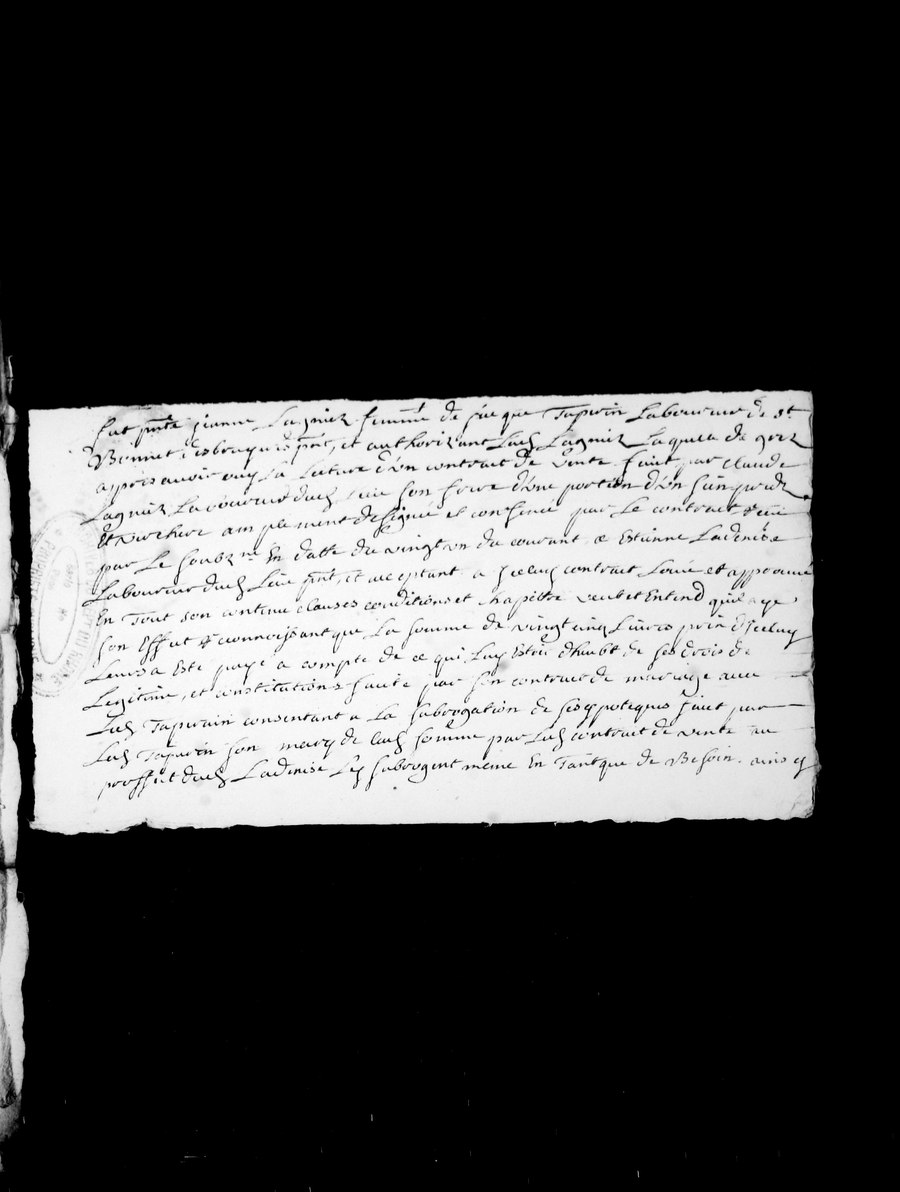 fut pnte jeanne Lagniez femme de jacque Tapwin Laboureur de st
Bonnet pnt, et authorizant Lad Lagniez Laquele de grez
appres avoir ouy La Lecture d'un contrait de vente fait par claude
Lagniez Laboureur dud Lieu son frere d'une portion d'un
et verchere amplement designé et confiné par Le contrait
par Le soubz ne En datte du vingt un du courant, a Estienne Ladenise
Laboureur dud Lieu pnt, et acceptant a jceluy contrait Loue et approuve
En Tout son contenu clauses conditions et chapitre veut et Entend quil aye
son Effect connoissant que La somme de vingt cinq Livres prix d'jceluy
Leur a Esté payé a compte de ce qui Luy Estoit dheubt de ses drois de
Legitime, et constitutions faite par son contrat de mariage avec
Led Tapwin consentant a La subrogation de ses ypoteques fait par
Led Tapwin son mary de lad somme par Led contrait de vente au
proffit dud Ladenise Ley subrogent meme En Tant que de Besoin. ainsy